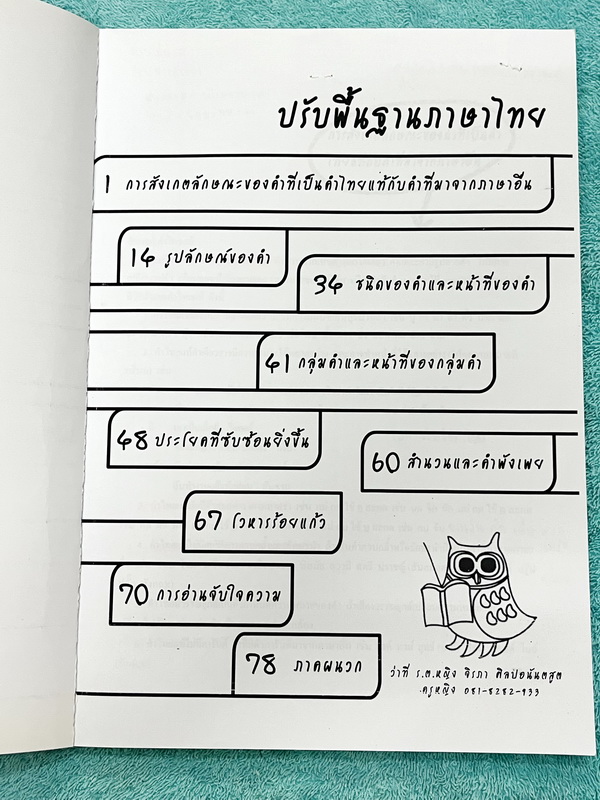 ปรับพื้นฐานภาษาไทย
1 การสังเกตลักษณะของคำที่เป็นคำไทยแท้กับคำที่มาจากภาษาอื่น
14 รูปลักษณ์ของคำ
34 ชนิดของคำและหน้าที่ของคำ
41 กลุ่มคำและหน้าที่ของกลุ่มคำ
48 ประโยคที่ซับซ้อนยิ่งขึ้น
60 สำนวนและคำพังเพย
67 โวหารร้อยแก้ว
70 การอ่านจับใจความ
78 ภาคผนวก
ว่าที่ ร.ต.หญิง จิรภา ศิลปอนันตสูต
ครูหญิง